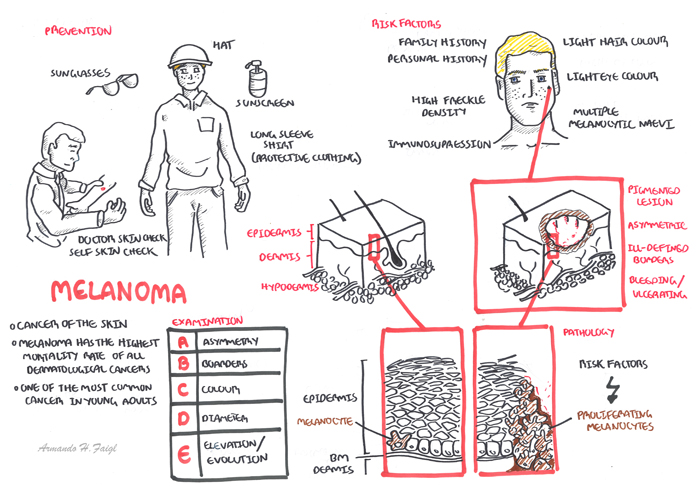 PREVENTION
HAT
SUNGLASSES
SUNSCREEN
LONG SLEEVE
SHIRT
(PROTECTIVE CLOTHING)
DOCTOR SKIN CHECK
SELF SKIN CHECK
RISK FACTORS
FAMILY HISTORY
PERSONAL HISTORY
HIGH FRECKLE
DENSITY
IMMUNOSUPRESSION
LIGHT HAIR COLOUR
LIGHT EYE COLOUR
MULTIPLE
MELANOCYTIC NAEVI
EPIDERMIS
DERMIS
HYPODERMIS
PIGMENTED
LESION
ASYMMETRIC
ILL-DEFINED
BORDERS
BLEEDING/
ULCERATING
MELANOMA
O CANCER OF THE SKIN
O MELANOMA HAS THE HIGHEST
MORTALITY RATE OF ALL
DERMATOLOGICAL CANCERS
O ONE OF THE MOST COMMON
CANCER IN YOUNG ADULTS
Armando H. Faigl
EXAMINATION
A ASYMMETRY
B BOARDERS
C COLOUR
D DIAMETER
E ELEVATION/
EVOLUTION
EPIDERMIS
MELANOCYTE
BM
DERMIS
PATHOLOGY
RISK FACTORS
PROLIFERATING
MELANOCYTES